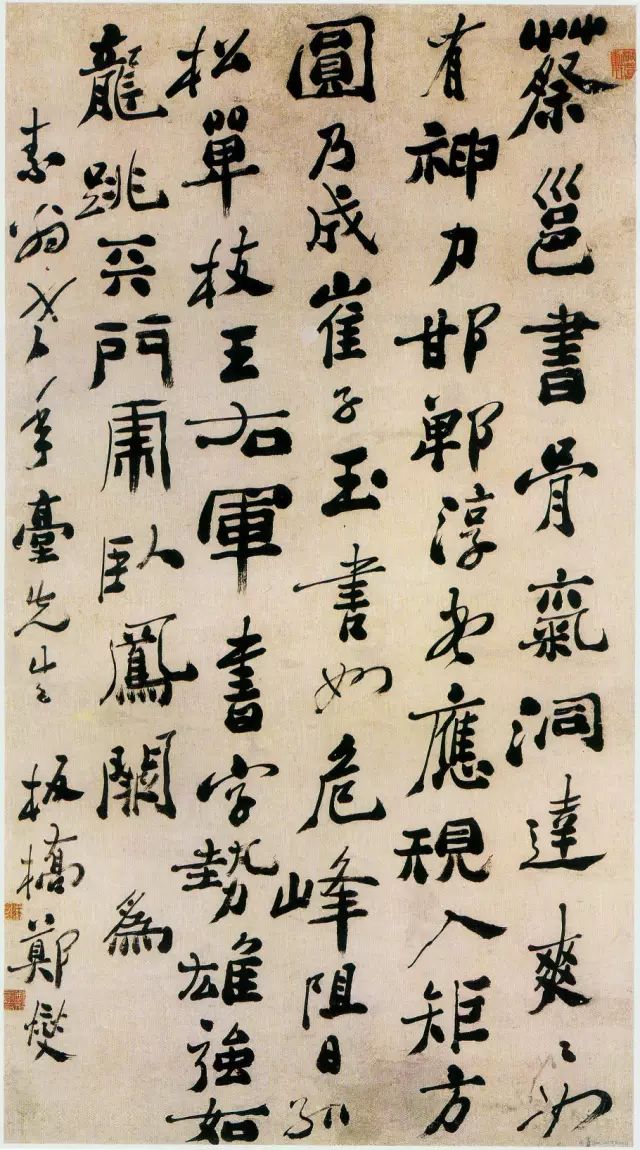 蔡邕書骨氣洞達爽〻如
有神力邯鄲淳書應規入矩方
圓乃成崔子玉書如危峰阻日孤
松單枝王右軍書字勢雄強如
龍跳天門虎臥鳳闕 為
素翁老年臺先生 板橋鄭燮